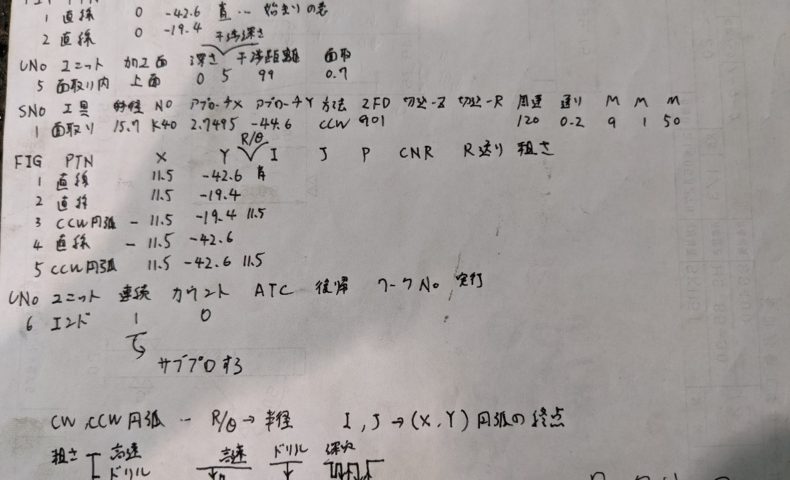 1 直線 0 -42.6 直… 始まりの点
2 直線 0 -19.4
干渉深さ
UNo ユニット 加工面 深さ 干渉距離 面取
5 面取り内 上面 0 5 99 0.7
SNO 工具 呼び径 NO アプローチX アプローチY 方法 ZFD 切込-Z 切込-R 周速 送り M M M
1 面取り 15.7 K40 2.7495 -44.6 CCW G01 120 0.2 9 1 50
R/θ
FIG PTN X Y I J P CNR R送り 粗さ
1 直線 11.5 -42.6
2 直線 11.5 -19.4
3 CCW円弧 -11.5 -19.4 11.5
4 直線 -11.5 -42.6
5 CCW円弧 11.5 -42.6 11.5
UNo ユニット 連続 カウント ATC 復帰 ワークNo 実行
6 エンド 1 0
サブプロする
CW,CCW円弧 … R/θ→半径 I,J→(X,Y)円弧の終点
粗さ 高速 高速 ドリル 深穴
ドリル